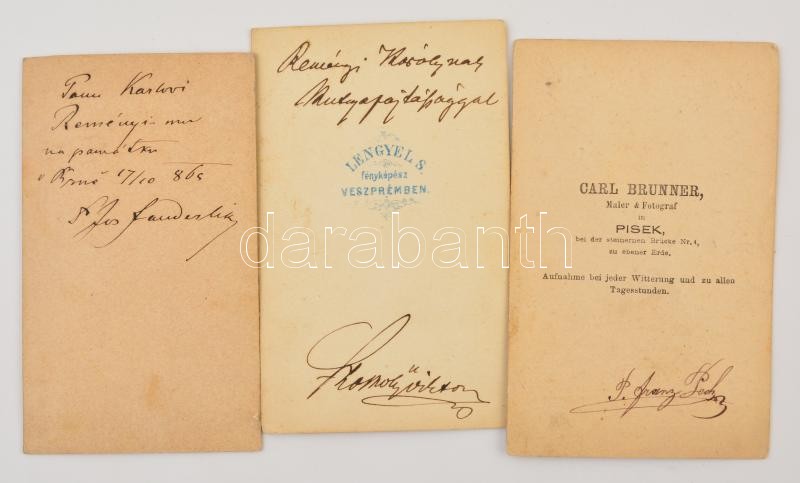 Panu Karlovi
Reményi-mu
na památku
v Brně 17/10 86
Jos
Reményi Károlynak
Mutyapajtásággal
LENGYEL S.
fényképész
VESZPRÉMBEN.
CARL BRUNNER,
Maler & Fotograf
in
PISEK,
bei der steinernen Brücke Nr. 4,
zu ebener Erde.
Aufnahme bei jeder Witterung und zu allen
Tagesstunden.
darabanth
P. Franz